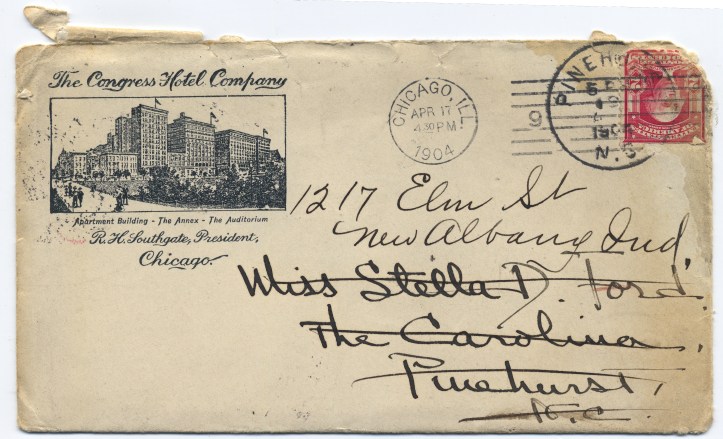 The Congress Hotel Company
Apartment Building - The Annex - The Auditorium
R. H. Southgate, President,
Chicago.
CHICAGO, ILL.
APR 17
4 30 PM
1904
9
PINEH
N. C.
1217 Elm St
New Albany Ind.
Miss Stella D. Ford.
The Carolina,
Pinehurst,
N. C.